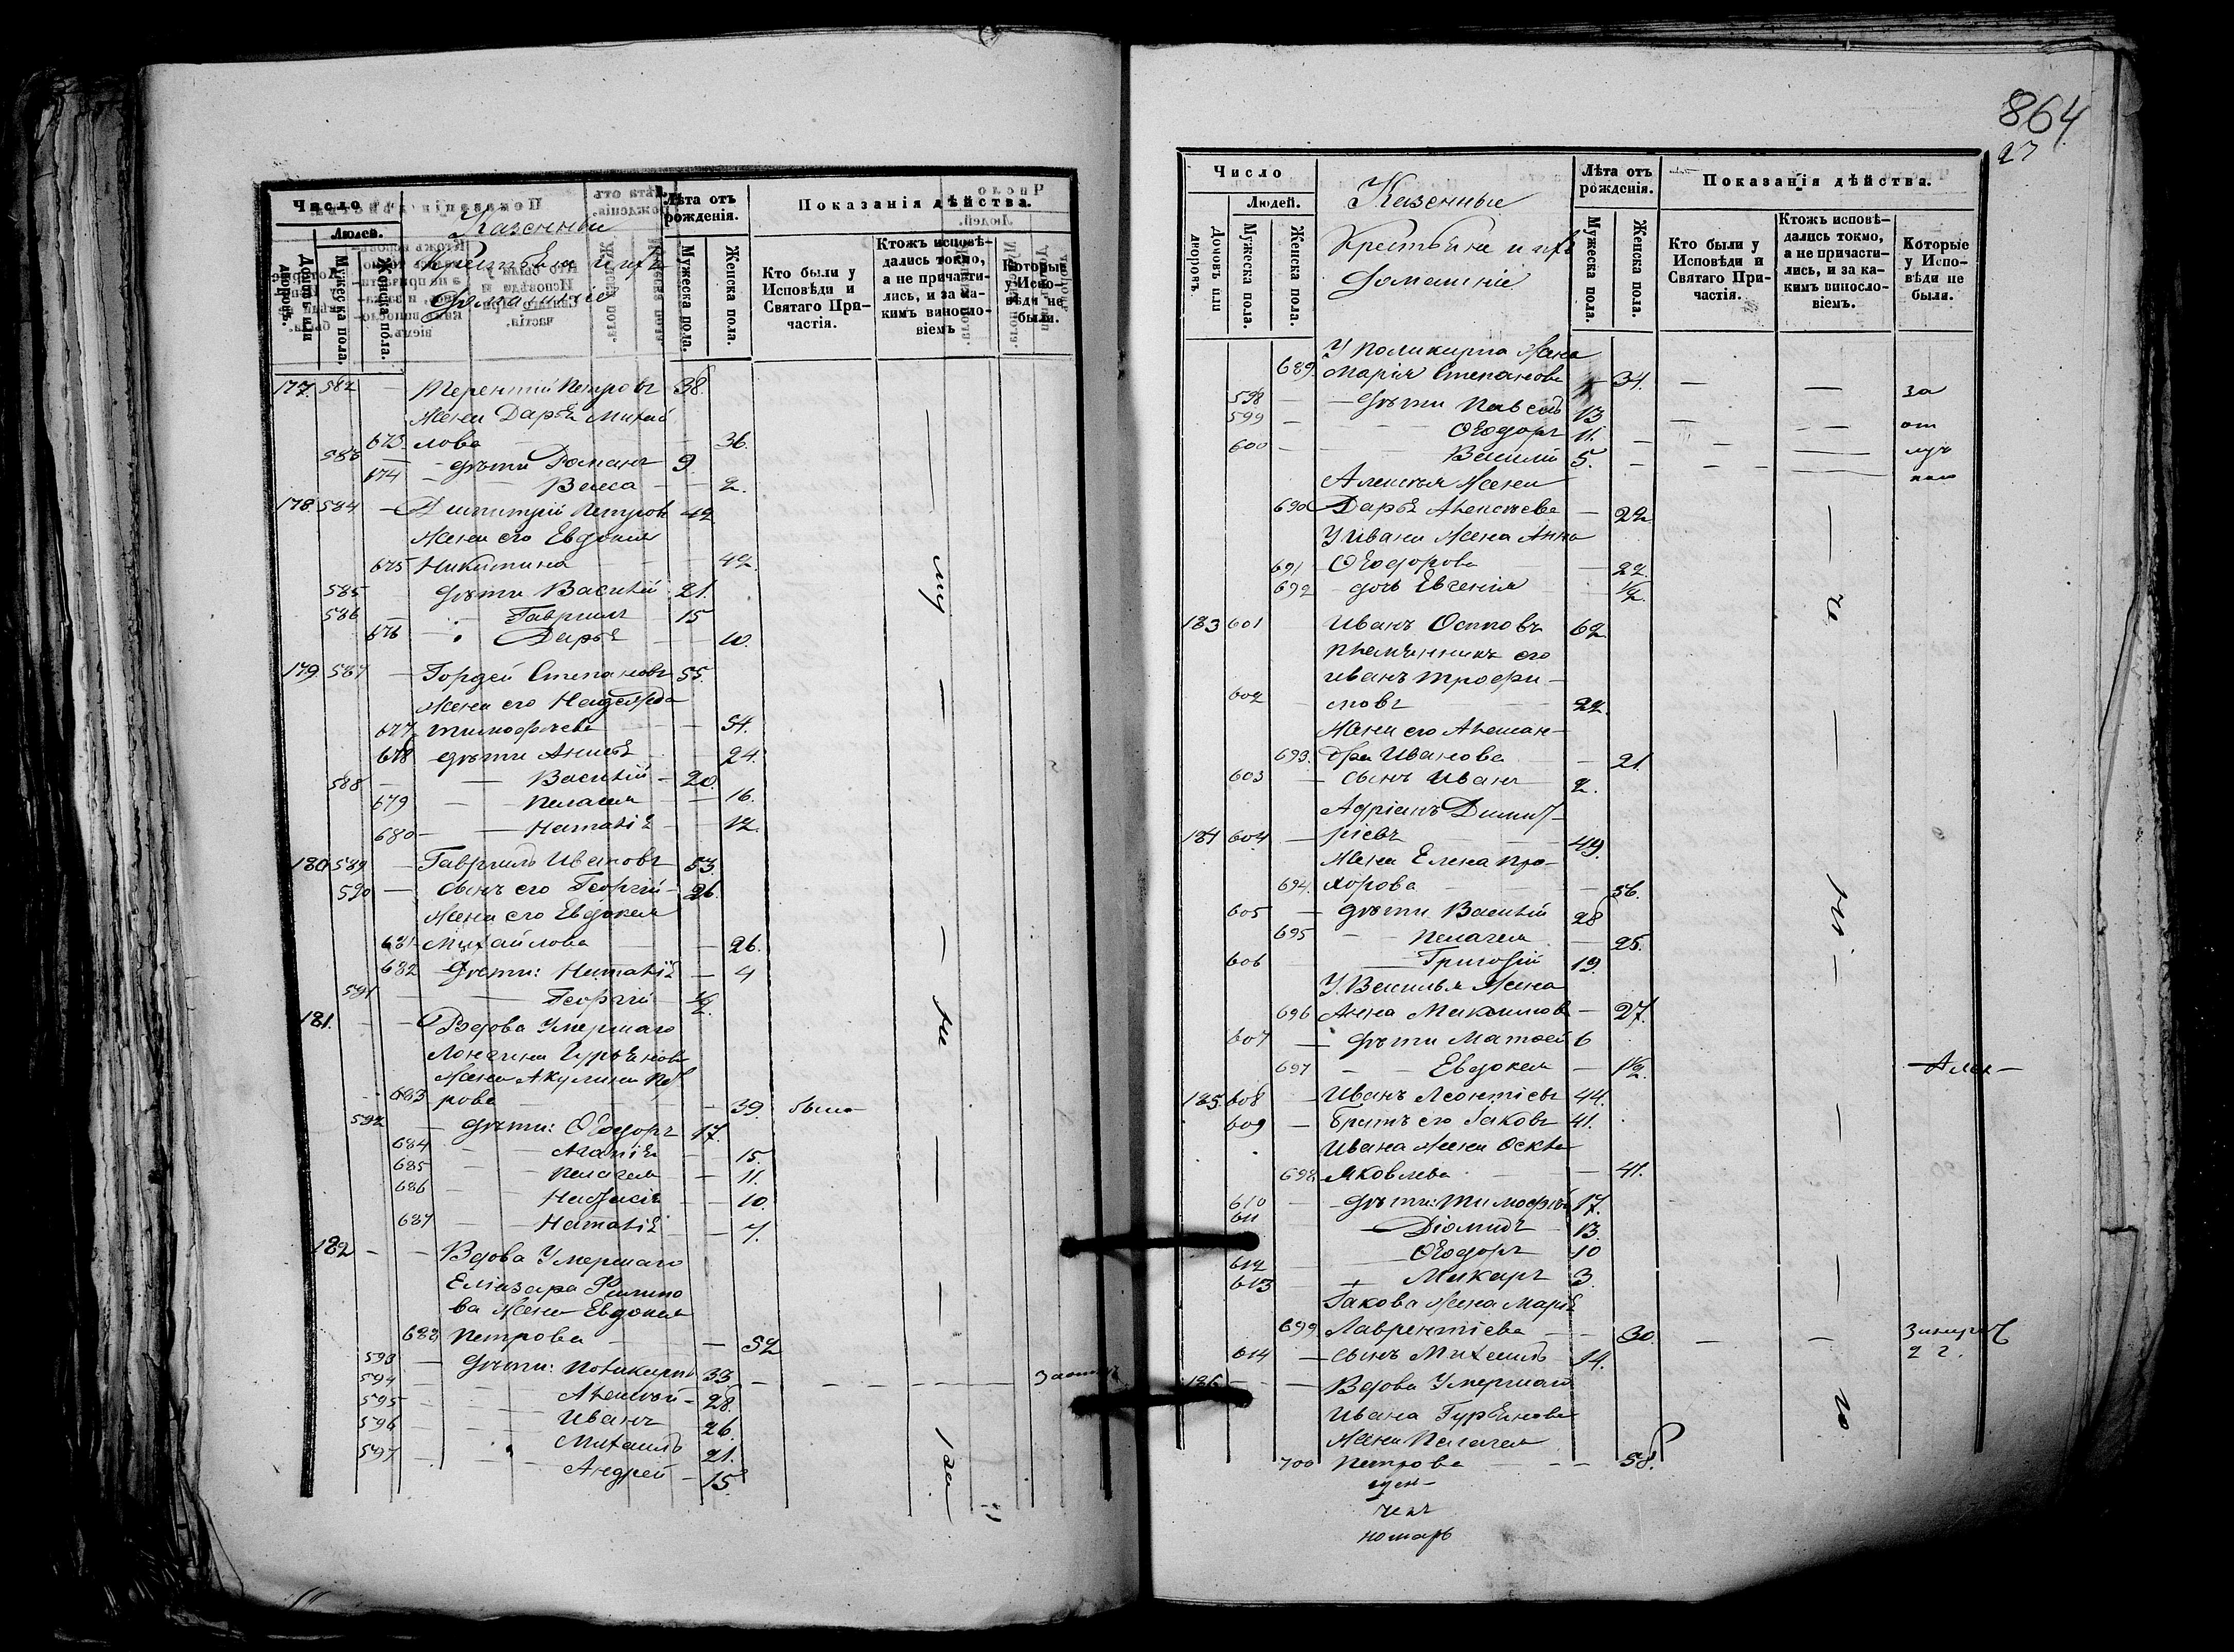 Число
Людей.
Домовъ или дворовъ.
Мужеска пола.
Женска пола.
Казенные
Крестьяне и ихъ
Домашніе
Лѣта отъ рожденія.
Мужеска пола.
Женска пола.
Показанія дѣйства.
Кто были у Исповѣди и Святаго Причастія.
Ктожъ исповѣдались токмо, а не причастились, и за какимъ винословіемъ
Которые у Исповѣди не были.
177 582 — Терентій Петровъ 38.
Жена Дарья Михай
673 лова — 36.
583 — дѣти Романъ 9
674 — Васса — 2.
178 584 — Димитрій Петровъ 42
Жена его Евдокия
675 Никитина 42.
585 дѣти Василій 21.
586 — Гавриилъ 15
676 — Дарья — 10.
179 587 — Гордей Степановъ 55.
Жена его Надежда
677 Тимофѣева — 54.
678 дѣти Анисья 24.
588 — Василій — 20.
679 — Пелагея — 16.
680 — Наталія — 12.
180 589 — Гавриилъ Ивановъ 53.
590 — сынъ его Георгій — 26.
Жена его Евдокея
681 Михайлова — 26.
682 Дѣти: Наталія — 4
591 — Георгій — 1/2.
181. — Вдова Умершаго
Лонгина Гурьянова
Жена Акулина Пет
683 рова — 39. была
592 — дѣти: Ѳеодоръ 17.
684 — Агапія 15.
685 — Пелагея — 11.
686 — 10.
687 — Наталія — 7.
182 — Вдова Умершаго
Еліазара Филипо
ва Жена Евдокея
688 Петрова — 52
593 — Дѣти: Поликарпъ 33 —
594 — Алексѣй — 28.
595 — Иванъ 26.
596 — Михаилъ 21.
597 — Андрей — 15
864
27
Число
Людей.
Домовъ или дворовъ.
Мужеска пола.
Женска пола.
Казенные
Крестьяне и ихъ
Домашніе
Лѣта отъ рожденія.
Мужеска пола.
Женска пола.
Показанія дѣйства.
Кто были у Исповѣди и Святаго Причастія.
Ктожъ исповѣдались токмо, а не причастились, и за какимъ винословіемъ.
Которые у Исповѣди не были.
У Поликарпа Жена
689. Марія Степанова — 34. — — за
598 — дѣти Павелъ 13
599 — Ѳеодоръ 11. — от
600 — Василій 5. — луч
Алексѣя Жена
690 Дарья Алексѣева — 22
У Ивана Жена Анна
691 Ѳеодорова — 22.
692 дочь Евгенія 1/2.
183 601 Иванъ Осиповъ 62
племянникъ его
Иванъ Трофи—
602 мовъ 22.
Жена его Алексан—
693. дра Иванова — 21.
603 — сынъ Иванъ 2.
Адріанъ Димит
184 604 — ріевъ 49.
Жена Елена Про—
694. хорова — 56.
605 — дѣти Василій 28
695 — Пелагея — 25.
606 — Григорій 19.
У Василья Жена
696 Анна Максимова — 27.
607 — дѣти Матѳей 6
697 — Евдокея — 1 1/2.
185. 608 — Иванъ Леонтіевъ 44.
609 — Братъ его Іаковъ 41.
Ивана Жена Ѳекла
698 Яковлева — 41.
610 — дѣти: Тимофѣй 17.
611 — Діомидъ 13.
612 — Ѳеодоръ 10
613 — Макаръ 3.
Іакова Жена Марія
699 Лаврентіева — 30. — —
614 — сынъ Михаилъ 14. 2 г.
186 — Вдова Умершаго
Ивана Гурьянова
Жена Пелагея
700 Петрова — 58.